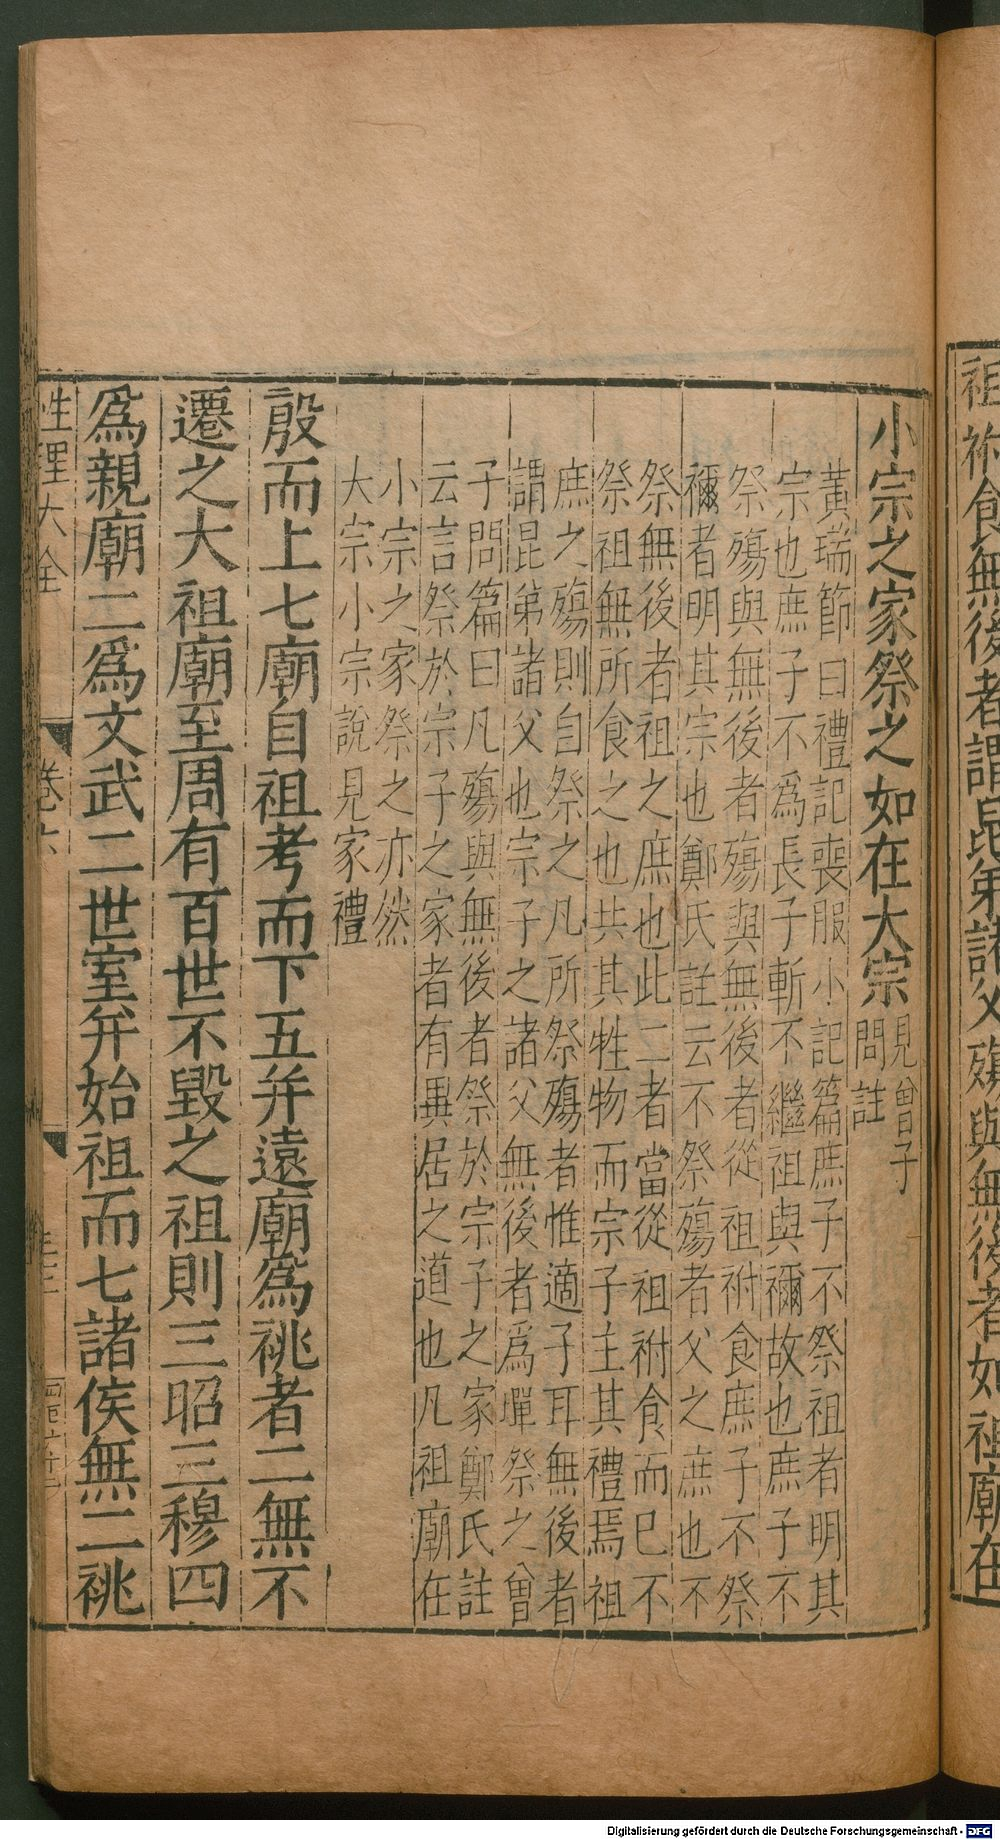 祖祔食無後者謂昆弟諸父殤與無後者如祖廟在
小宗之家祭之如在大宗見曾子
問註
黃瑞節曰禮記喪服小記篇庶子不祭祖者明其
宗也庶子不爲長子斬不繼祖與禰故也庶子不
祭殤與無後者殤與無後者從祖祔食庶子不祭
禰者明其宗也鄭氏註云不祭殤者父之庶也不
祭無後者祖之庶也此二者當從祖祔食而已不
祭祖無所食之也共其牲物而宗子主其禮焉祖
庶之殤則自祭之凡所祭殤者惟適子耳無後者
謂昆弟諸父也宗子之諸父無後者爲墠祭之曾
子問篇曰凡殤與無後者祭於宗子之家鄭氏註
云言祭於宗子之家者有異居之道也凡祖廟在
小宗之家祭之亦然
大宗小宗說見家禮
殷而上七廟自祖考而下五并遠廟爲祧者二無不
遷之大祖廟至周有百世不毀之祖則三昭三穆四
爲親廟二爲文武二世室并始祖而七諸侯無二祧
性理大全 卷六
Digitalisierung gefördert durch die Deutsche Forschungsgemeinschaft - DFG